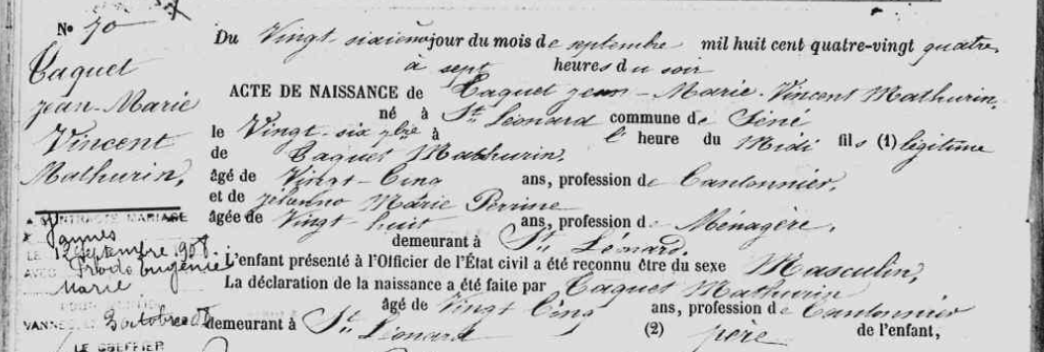 N° 70
Caquet
Jean-Marie
Vincent
Mathurin,
A CONTRACTÉ MARIAGE
Vannes
LE 12 Septembre 1908
AVEC Eugénie
Marie
VANNES, 3 octobre 08
LE GREFFIER
Du Vingt-sixième jour du mois de septembre mil huit cent quatre-vingt quatre,
à sept heures du soir
ACTE DE NAISSANCE de Caquet Jean-Marie-Vincent Mathurin,
né à St Léonard commune de Séné
le Vingt-six 7bre à l'heure du Midi fils (1) légitime
de Caquet Mathurin,
âgé de Vingt-Cinq ans, profession de Cantonnier,
et de Jehanno Marie Perrine
âgée de Vingt-huit ans, profession de Ménagère,
demeurant à St Léonard.
L'enfant présenté à l'Officier de l'État civil a été reconnu être du sexe Masculin,
La déclaration de la naissance a été faite par Caquet Mathurin
âgé de Vingt Cinq ans, profession de Cantonnier
demeurant à St Léonard (2) père de l'enfant,